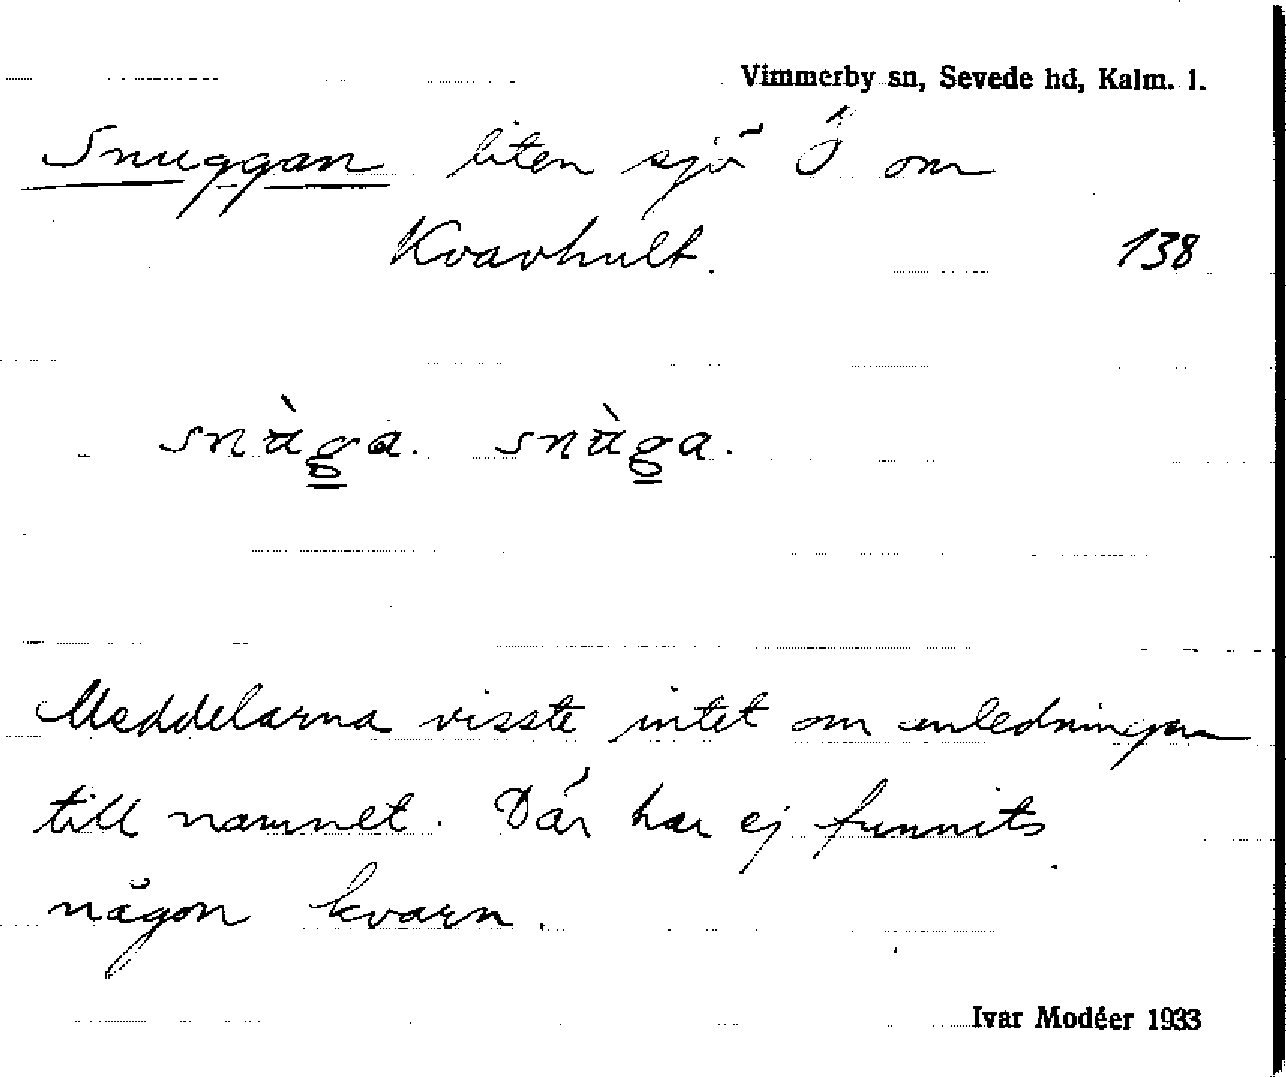 Vimmerby sn, Sevede hd, Kalm. l.
Snuggan liten sjö Ö om
Kvavhult.
138
snùga. snùga.
Meddelarna visste intet om anledningen
till namnet. Där har ej funnits
någon kvarn.
Ivar Modéer 1933